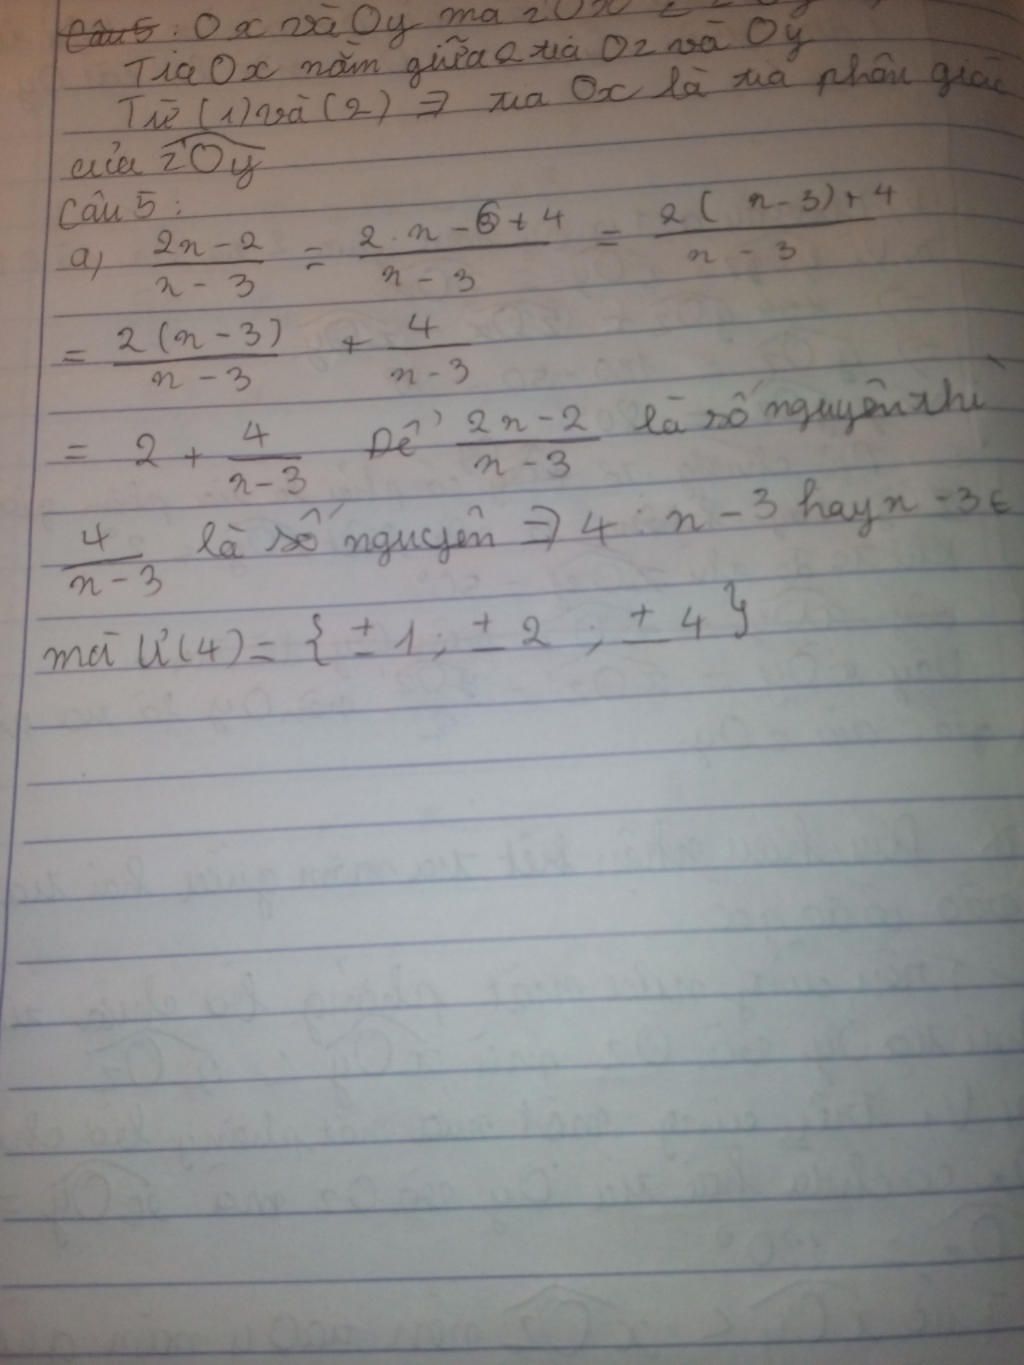 Câu 5: Ox và Oy mà
Tia Ox nằm giữa 2 tia Oz và Oy
Từ (1) và (2) => tia Ox là tia phân giác
của zOy
Câu 5:
a) (2n-2)/(n-3) = (2.n-6+4)/(n-3) = (2(n-3)+4)/(n-3)
= (2(n-3))/(n-3) + 4/(n-3)
= 2 + 4/(n-3) Để (2n-2)/(n-3) là số nguyên thì
4/(n-3) là số nguyên => 4 ⋮ n-3 hay n-3 ∈
mà Ư(4) = {±1; ±2; ±4}